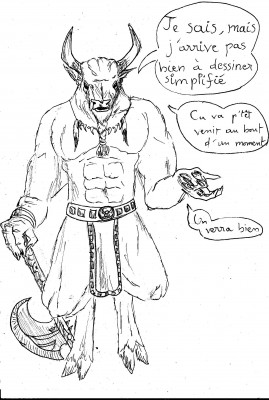 Je sais, mais
j'arrive pas
bien à dessiner
simplifié
Ça va p'têt
venir au bout
d'un moment
On
verra bien